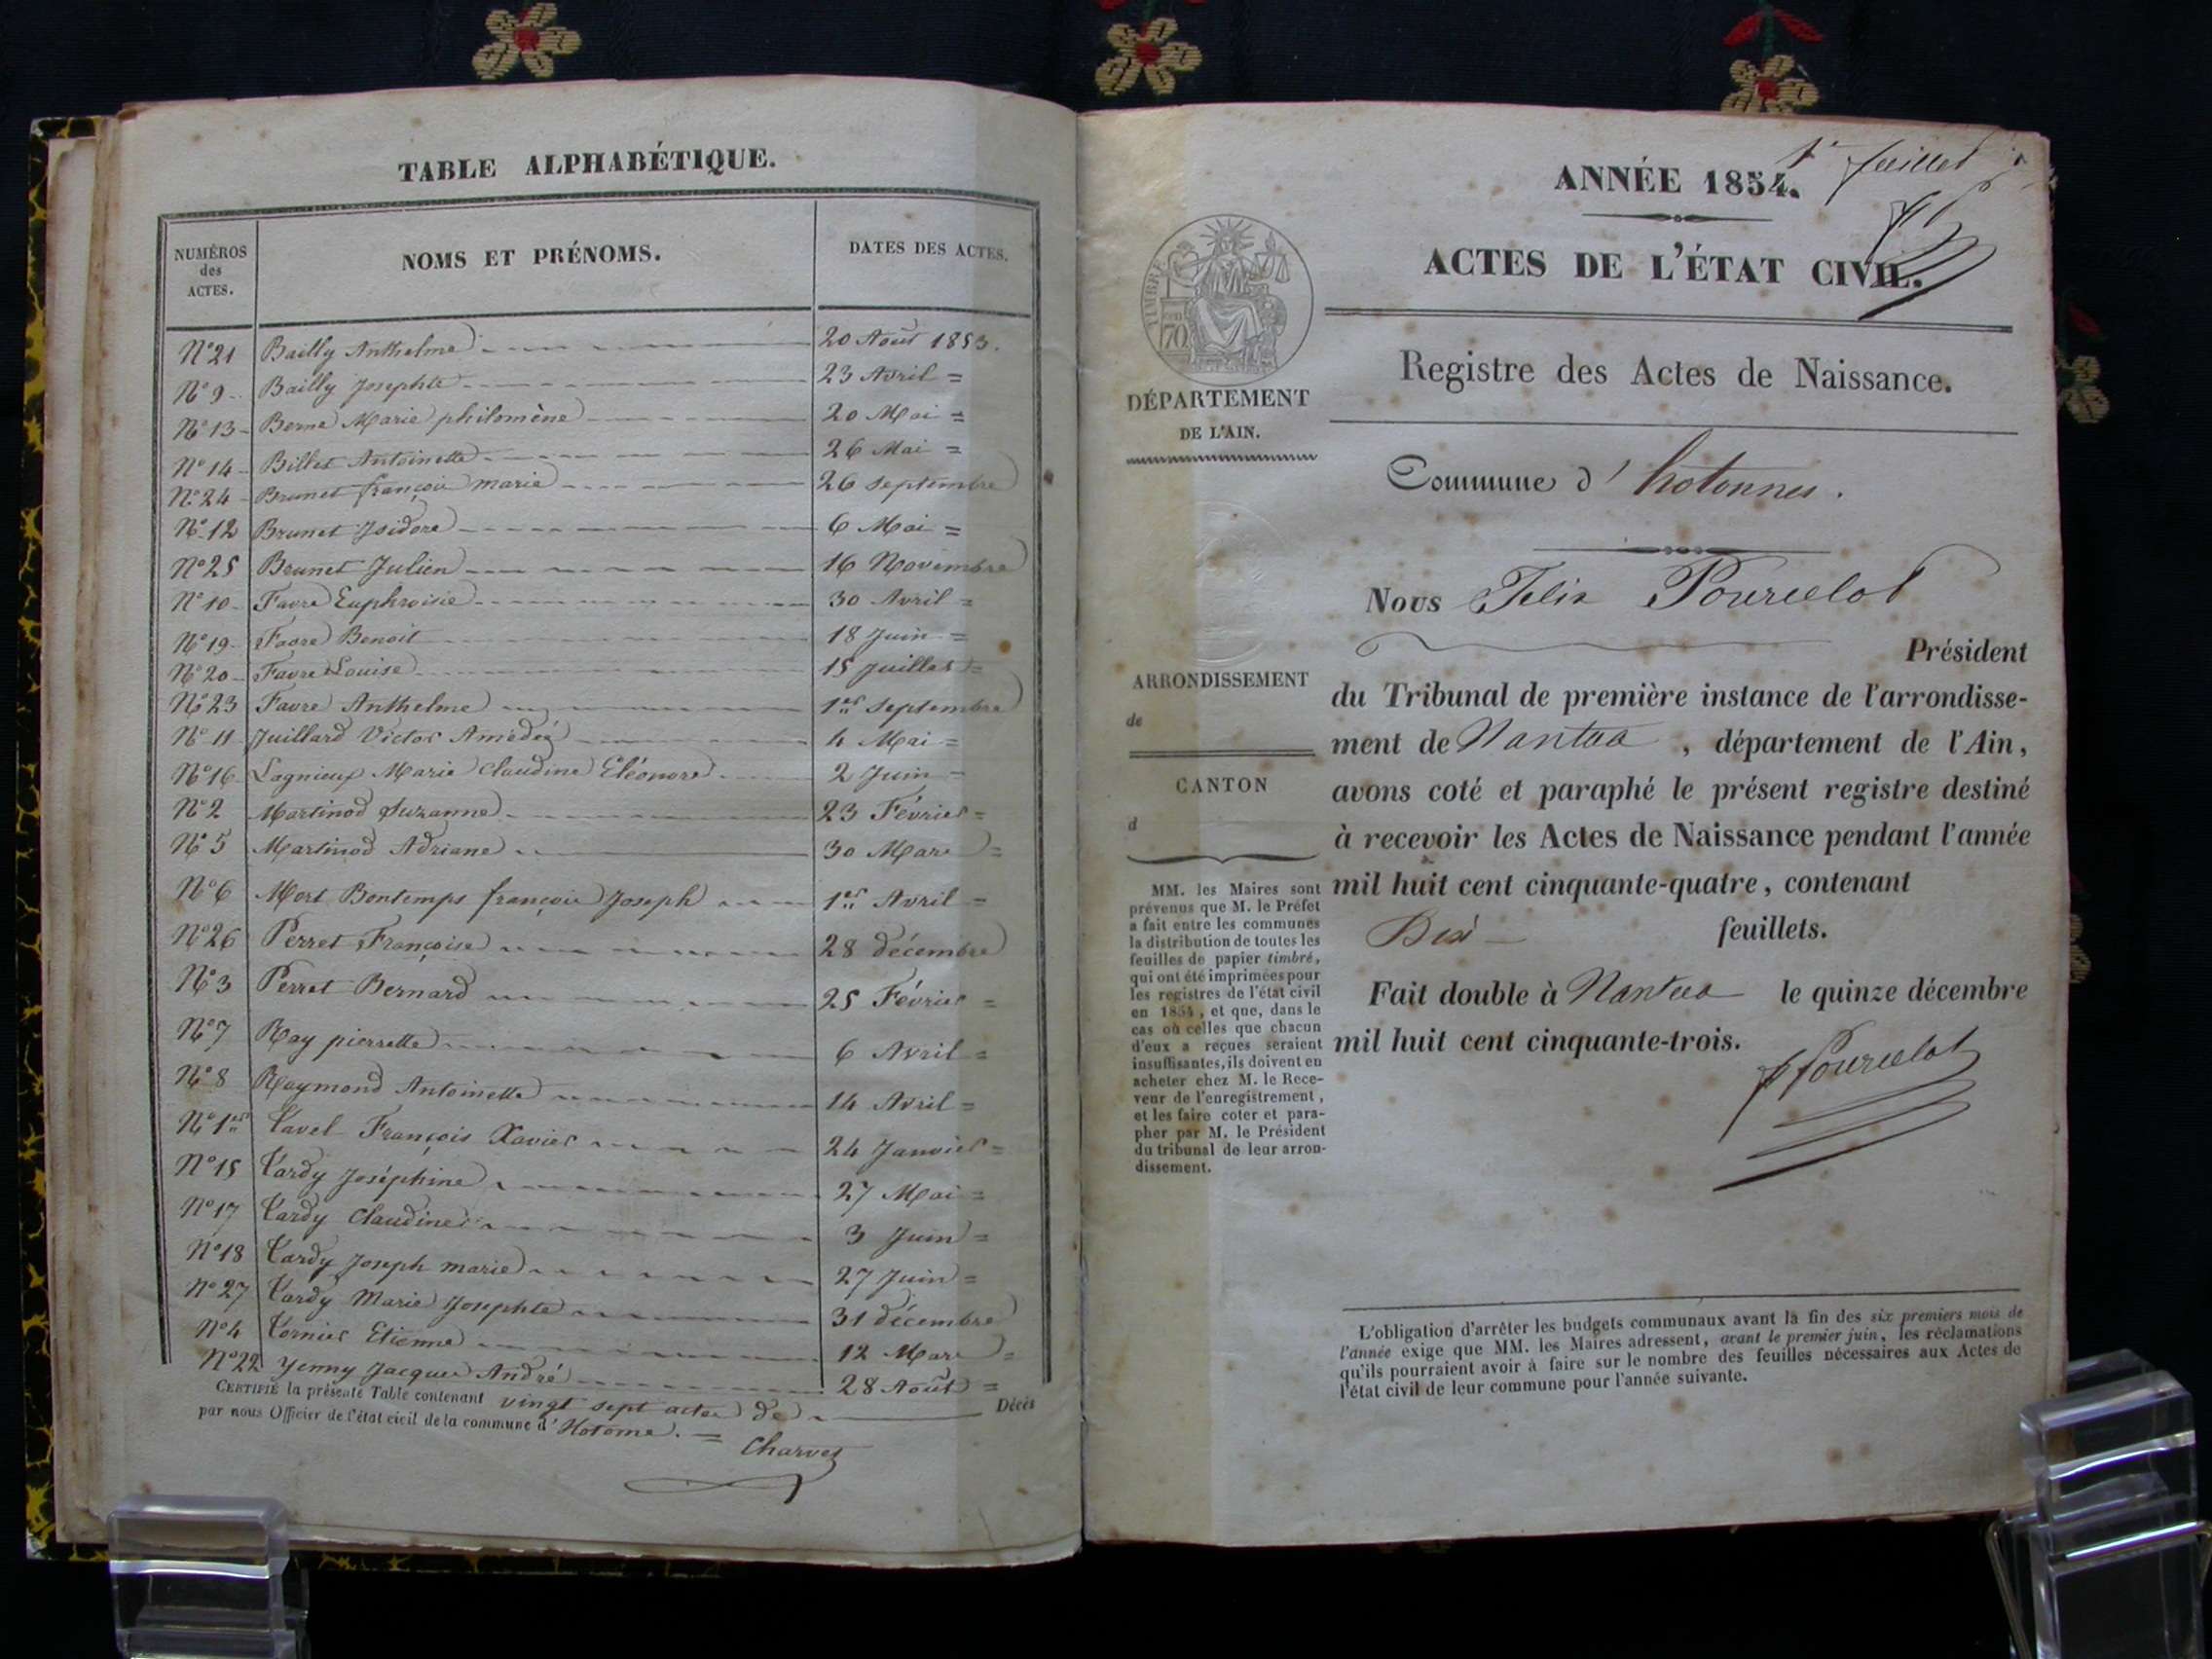 TABLE ALPHABÉTIQUE.
NUMÉROS des ACTES. NOMS ET PRÉNOMS. DATES DES ACTES.
N°21 Bailly Anthelme 20 Août 1853.
N°9 Bailly Josephte 23 Avril =
N°13 Berne Marie philomène 20 Mai =
N°14 Billet Antoinette 26 Mai =
N°24 Brunet françois marie 26 septembre
N°12 Brunet Isidore 6 Mai =
N°25 Brunet Julien 16 Novembre
N°10 Favre Euphroisie 30 Avril =
N°19 Favre Benoit 18 Juin =
N°20 Favre Louise 15 Juillet =
N°23 Favre Anthelme 1er septembre
N°11 Juillard Victor Amédeé 4 Mai =
N°16 Lagnieux Marie Claudine Eléonore 2 Juin =
N°2 Martinod Suzanne 23 Février =
N°5 Martinod Adriane 30 Mars =
N°6 Mort Bontemps françois Joseph 1er Avril =
N°26 Perret Françoise 28 décembre
N°3 Perret Bernard 25 Février =
N°7 Ray pierrette 6 Avril =
N°8 Raymond Antoinette 14 Avril =
N°1er Tavel François Xavier 24 Janvier =
N°15 Tardy Joséphine 27 Mai =
N°17 Tardy Claudine 3 Juin =
N°18 Tardy Joseph marie 27 Juin =
N°27 Tardy Marie Josephte 31 décembre
N°4 Tornier Etienne 12 Mars =
N°22 Yenny Jacques André 28 Août =
CERTIFIÉ la présente Table contenant vingt sept actes de Décès
par nous Officier de l'état civil de la commune d'Hotonne. =
Charvet
1er feuillet
ANNÉE 1854.
ACTES DE L'ÉTAT CIVIL.
TIMBRE
70
Registre des Actes de Naissance.
DÉPARTEMENT
DE L'AIN.
Commune d'hotonnes.
Nous Felix Pourcelot
Président
ARRONDISSEMENT
de
CANTON
d
du Tribunal de première instance de l'arrondisse-
ment de Nantua, département de l'Ain,
avons coté et paraphé le présent registre destiné
à recevoir les Actes de Naissance pendant l'année
mil huit cent cinquante-quatre, contenant
Dix feuillets.
Fait double à Nantua le quinze décembre
mil huit cent cinquante-trois.
F Pourcelot
MM. les Maires sont
prévenus que M. le Préfet
a fait entre les communes
la distribution de toutes les
feuilles de papier timbré,
qui ont été imprimées pour
les registres de l'état civil
en 1854, et que, dans le
cas où celles que chacun
d'eux a reçues seraient
insuffisantes, ils doivent en
acheter chez M. le Rece-
veur de l'enregistrement,
et les faire coter et para-
pher par M. le Président
du tribunal de leur arron-
dissement.
L'obligation d'arrêter les budgets communaux avant la fin des six premiers mois de
l'année exige que MM. les Maires adressent, avant le premier juin, les réclamations
qu'ils pourraient avoir à faire sur le nombre des feuilles nécessaires aux Actes de
l'état civil de leur commune pour l'année suivante.